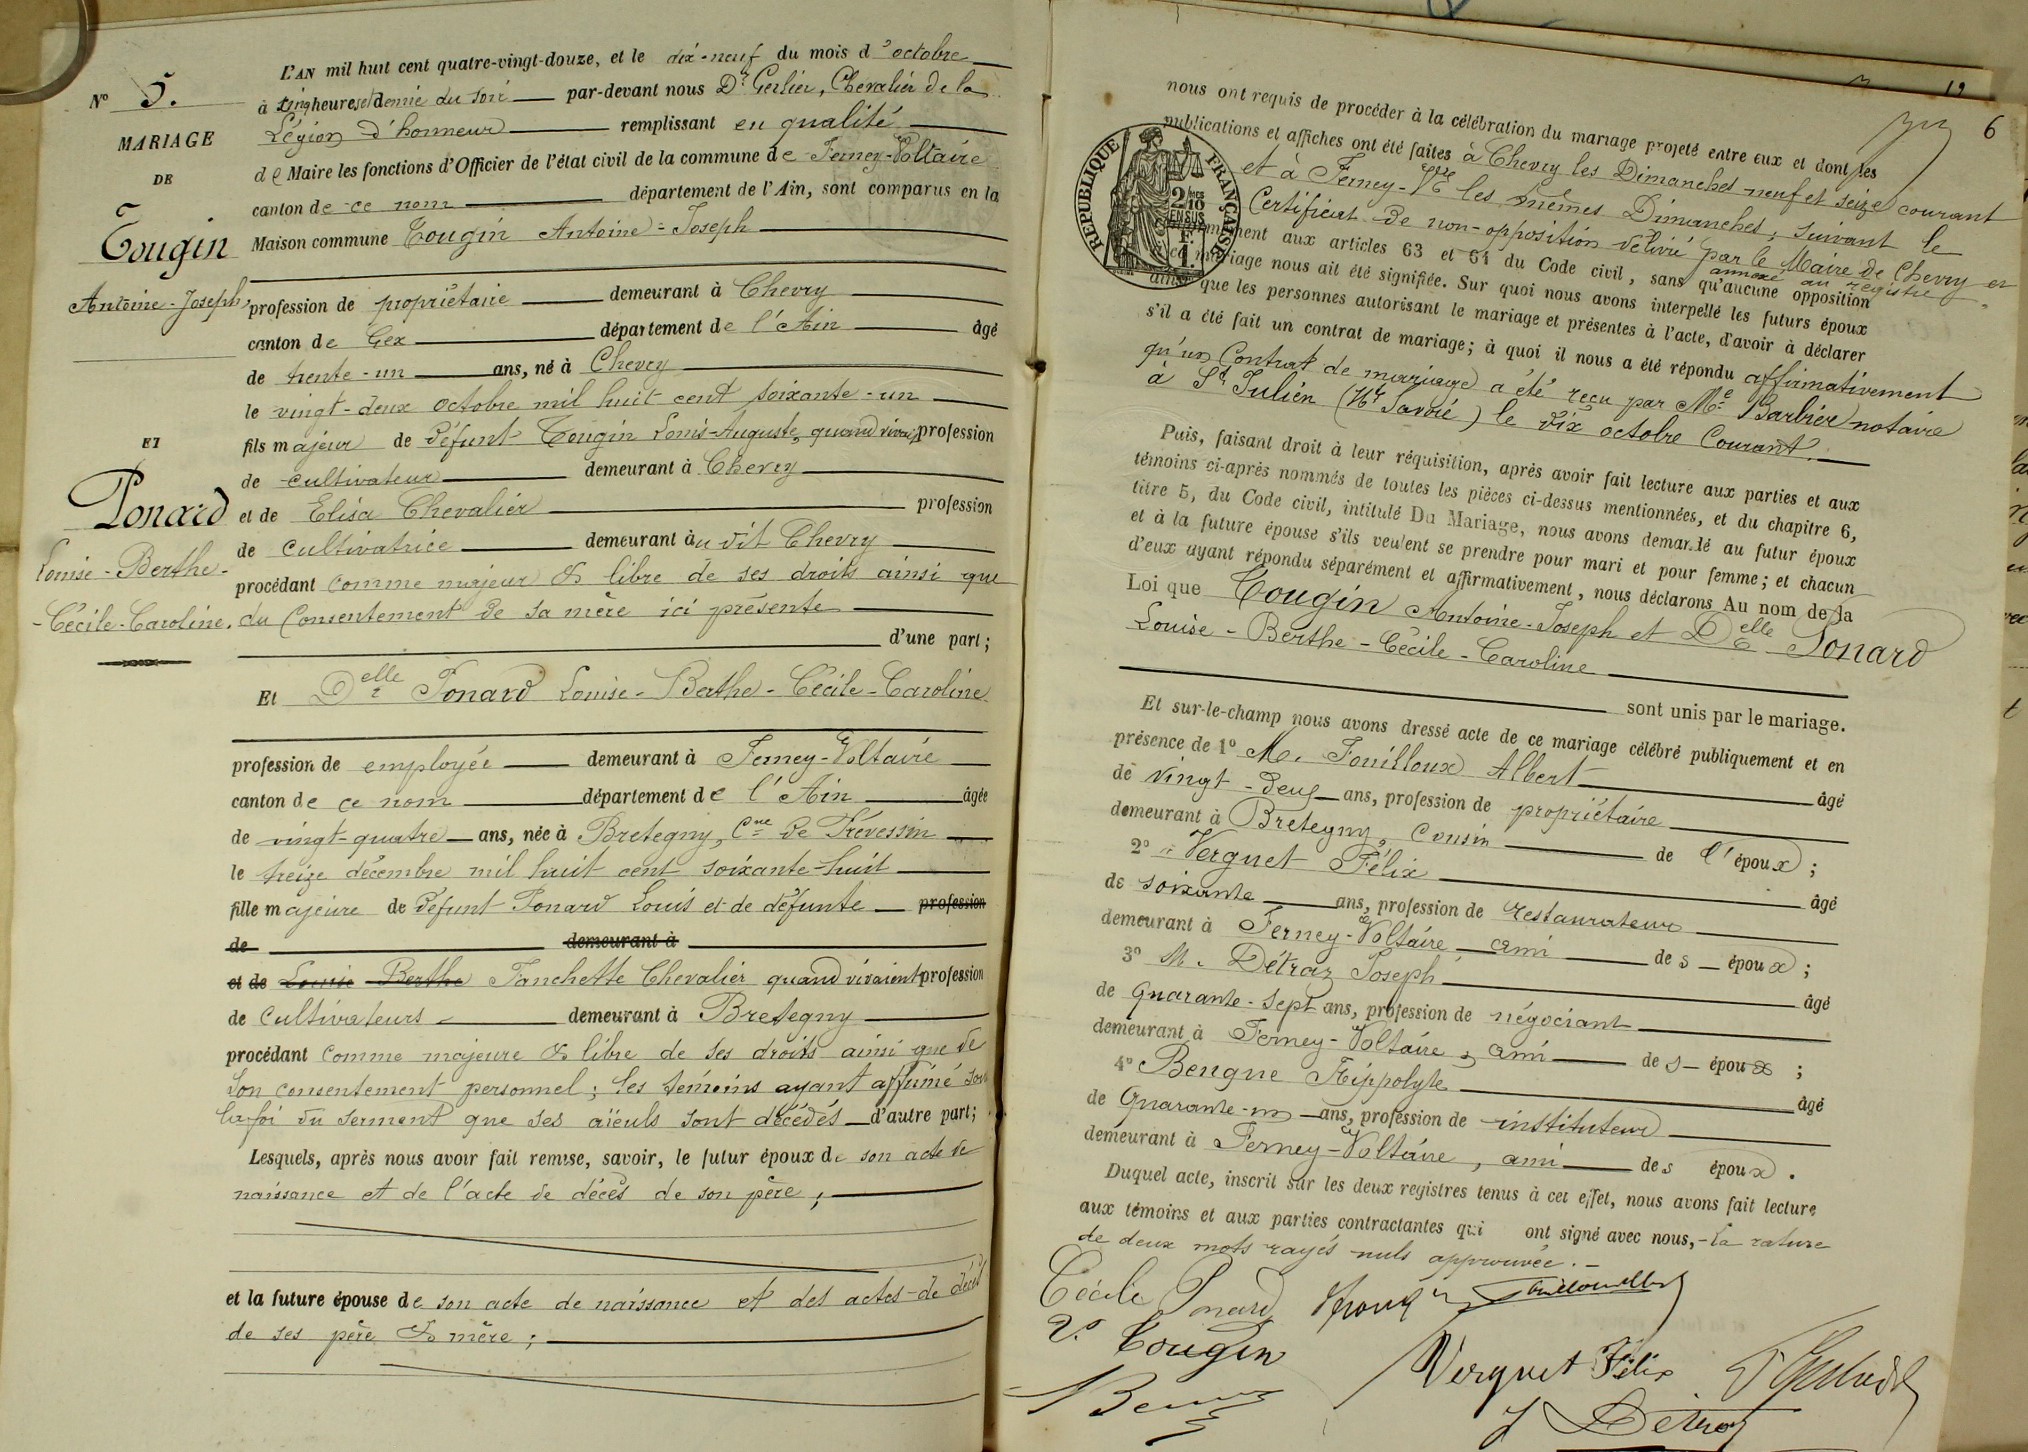 L'AN mil huit cent quatre-vingt-douze, et le dix-neuf du mois d'octobre
à cinq heures et demie du soir par-devant nous Dr Gerlier, Chevalier de la
Légion d'honneur remplissant en qualité
de Maire les fonctions d'Officier de l'état civil de la commune de Ferney-Voltaire
canton de ce nom département de l'Ain, sont comparus en la
Maison commune Tougin Antoine-Joseph
profession de propriétaire demeurant à Chevry
canton de Gex département de l'Ain âgé
de trente-un ans, né à Chevry
le vingt-deux octobre mil huit cent soixante-un
fils majeur de défunt Tougin Louis-Auguste, quand vivait profession
de cultivateur demeurant à Chevry
et de Elisa Chevalier profession
de cultivatrice demeurant au dit Chevry
procédant comme majeur & libre de ses droits ainsi que
du consentement de sa mère ici présente
d'une part;
Et Delle Ponard Louise-Berthe-Cécile-Caroline
profession de employée demeurant à Ferney-Voltaire
canton de ce nom département de l'Ain âgée
de vingt-quatre ans, née à Bretegny, Cne de Prévessin
le treize décembre mil huit cent soixante-huit
fille majeure de défunt Ponard Louis et de défunte profession
de demeurant à
et de Louise Berthe Fanchette Chevalier quand vivaient profession
de cultivateurs demeurant à Bretegny
procédant comme majeure & libre de ses droits ainsi que de
son consentement personnel; les témoins ayant affirmé sous
la foi du serment que ses aïeuls sont décédés d'autre part;
Lesquels, après nous avoir fait remise, savoir, le futur époux de son acte de
naissance et de l'acte de décès de son père;
et la future épouse de son acte de naissance et des actes de décès
de ses père & mère;
No 5.
MARIAGE
DE
Tougin
Antoine-Joseph,
ET
Ponard
Louise-Berthe-
-Cécile-Caroline.
12
6
nous ont requis de procéder à la célébration du mariage projeté entre eux et dont les
publications et affiches ont été faites à Chevry les Dimanches neuf et seize courant
et à Ferney-Vre les mêmes Dimanches, suivant le
Certificat de non-opposition délivré par le Maire de Chevry et
annexé au registre.
conformément aux articles 63 et 64 du Code civil, sans qu'aucune opposition
au mariage nous ait été signifiée. Sur quoi nous avons interpellé les futurs époux
ainsi que les personnes autorisant le mariage et présentes à l'acte, d'avoir à déclarer
s'il a été fait un contrat de mariage; à quoi il nous a été répondu affirmativement
qu'un Contrat de mariage a été reçu par Me Barbier notaire
à St Julien (Hte Savoie) le dix octobre courant.
RÉPUBLIQUE FRANÇAISE
2/10
EN SUS
1 F.
Puis, faisant droit à leur réquisition, après avoir fait lecture aux parties et aux
témoins ci-après nommés de toutes les pièces ci-dessus mentionnées, et du chapitre 6,
titre 5, du Code civil, intitulé Du Mariage, nous avons demandé au futur époux
et à la future épouse s'ils veulent se prendre pour mari et pour femme; et chacun
d'eux ayant répondu séparément et affirmativement, nous déclarons Au nom de la
Loi que Tougin Antoine-Joseph et Delle Ponard
Louise-Berthe-Cécile-Caroline
sont unis par le mariage.
Et sur-le-champ nous avons dressé acte de ce mariage célébré publiquement et en
présence de 1o M. Fouilloux Albert âgé
de vingt-deux ans, profession de propriétaire
demeurant à Bretegny, cousin de l'époux;
2o Verguet Félix âgé
de soixante ans, profession de restaurateur
demeurant à Ferney-Voltaire ami des époux;
3o M. Détraz Joseph âgé
de quarante-sept ans, profession de négociant
demeurant à Ferney-Voltaire, ami des époux;
4o Bengue Hippolyte âgé
de quarante-un ans, profession de instituteur
demeurant à Ferney-Voltaire, ami des époux.
Duquel acte, inscrit sur les deux registres tenus à cet effet, nous avons fait lecture
aux témoins et aux parties contractantes qui ont signé avec nous, - La rature
de deux mots rayés nuls approuvée.
Cécile Ponard
Vve Tougin
Verguet Félix
J Détraz